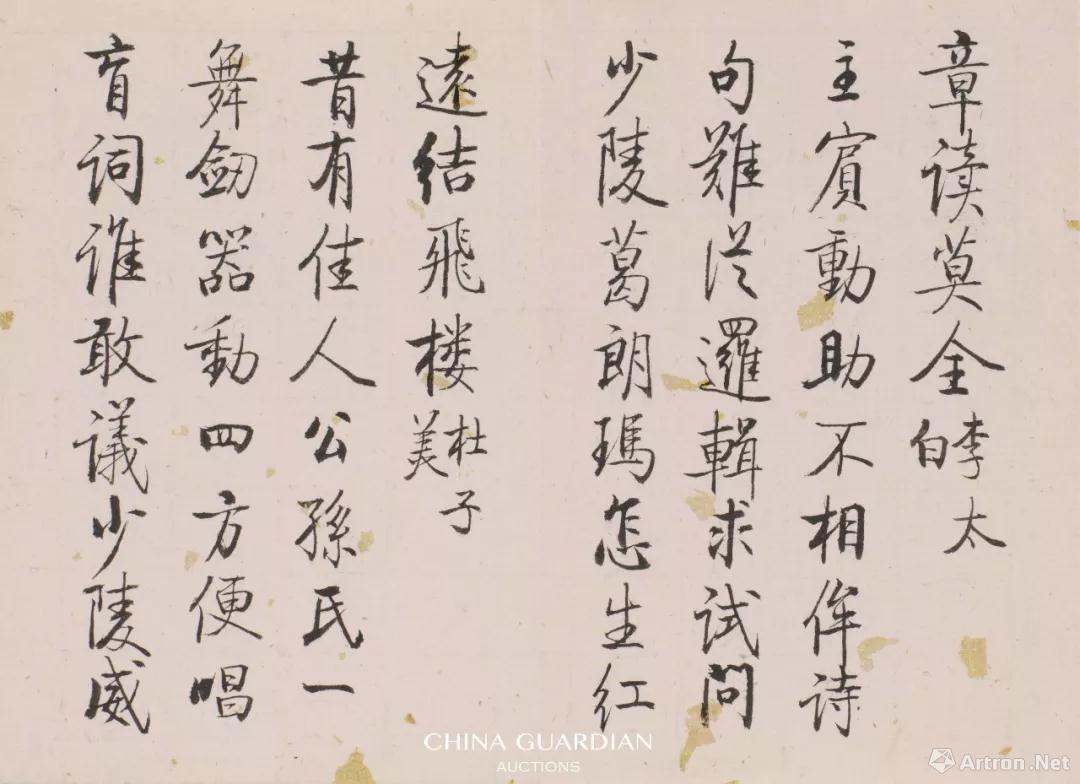 章读莫全李太白
主賓動助不相侔诗
句難從邏輯求试问
少陵葛朗瑪怎生红
遠结飛楼杜子美
昔有佳人公孫氏一
舞劔器動四方便唱
盲词谁敢議少陵威
CHINA GUARDIAN
AUCTIONS
Artron.Net